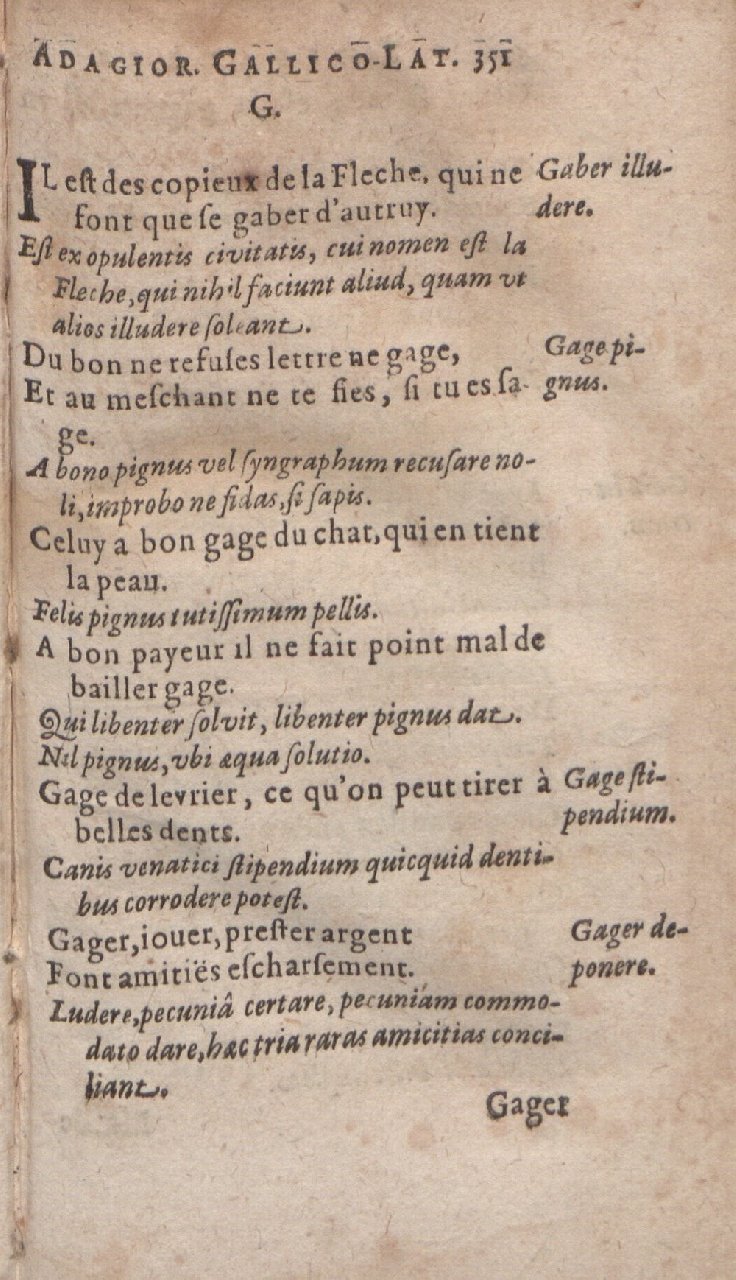 ADAGIOR. GALLICO-LAT. 351
G.
IL est des copieux de la Fleche, qui ne
font que se gaber d'autruy.
Gaber illu-
dere.
Est ex opulentis civitatis, cui nomen est la
Fleche, qui nihil faciunt aliud, quam vt
alios illudere soleant.
Du bon ne refuses lettre ne gage,
Et au meschant ne te fies, si tu es sa-
ge.
Gage pi-
gnus.
A bono pignus vel syngraphum recusare no-
li, improbo ne fidas, si sapis.
Celuy a bon gage du chat, qui en tient
la peau.
Felis pignus tutissimum pellis.
A bon payeur il ne fait point mal de
bailler gage.
Qui libenter solvit, libenter pignus dat.
Nil pignus, vbi æqua solutio.
Gage de levrier, ce qu'on peut tirer à
belles dents.
Gage sti-
pendium.
Canis venatici stipendium quicquid denti-
bus corrodere potest.
Gager, iouer, prester argent
Font amitiës escharsement.
Gager de-
ponere.
Ludere, pecuniâ certare, pecuniam commo-
dato dare, hæc tria raras amicitias conci-
liant.
Gager